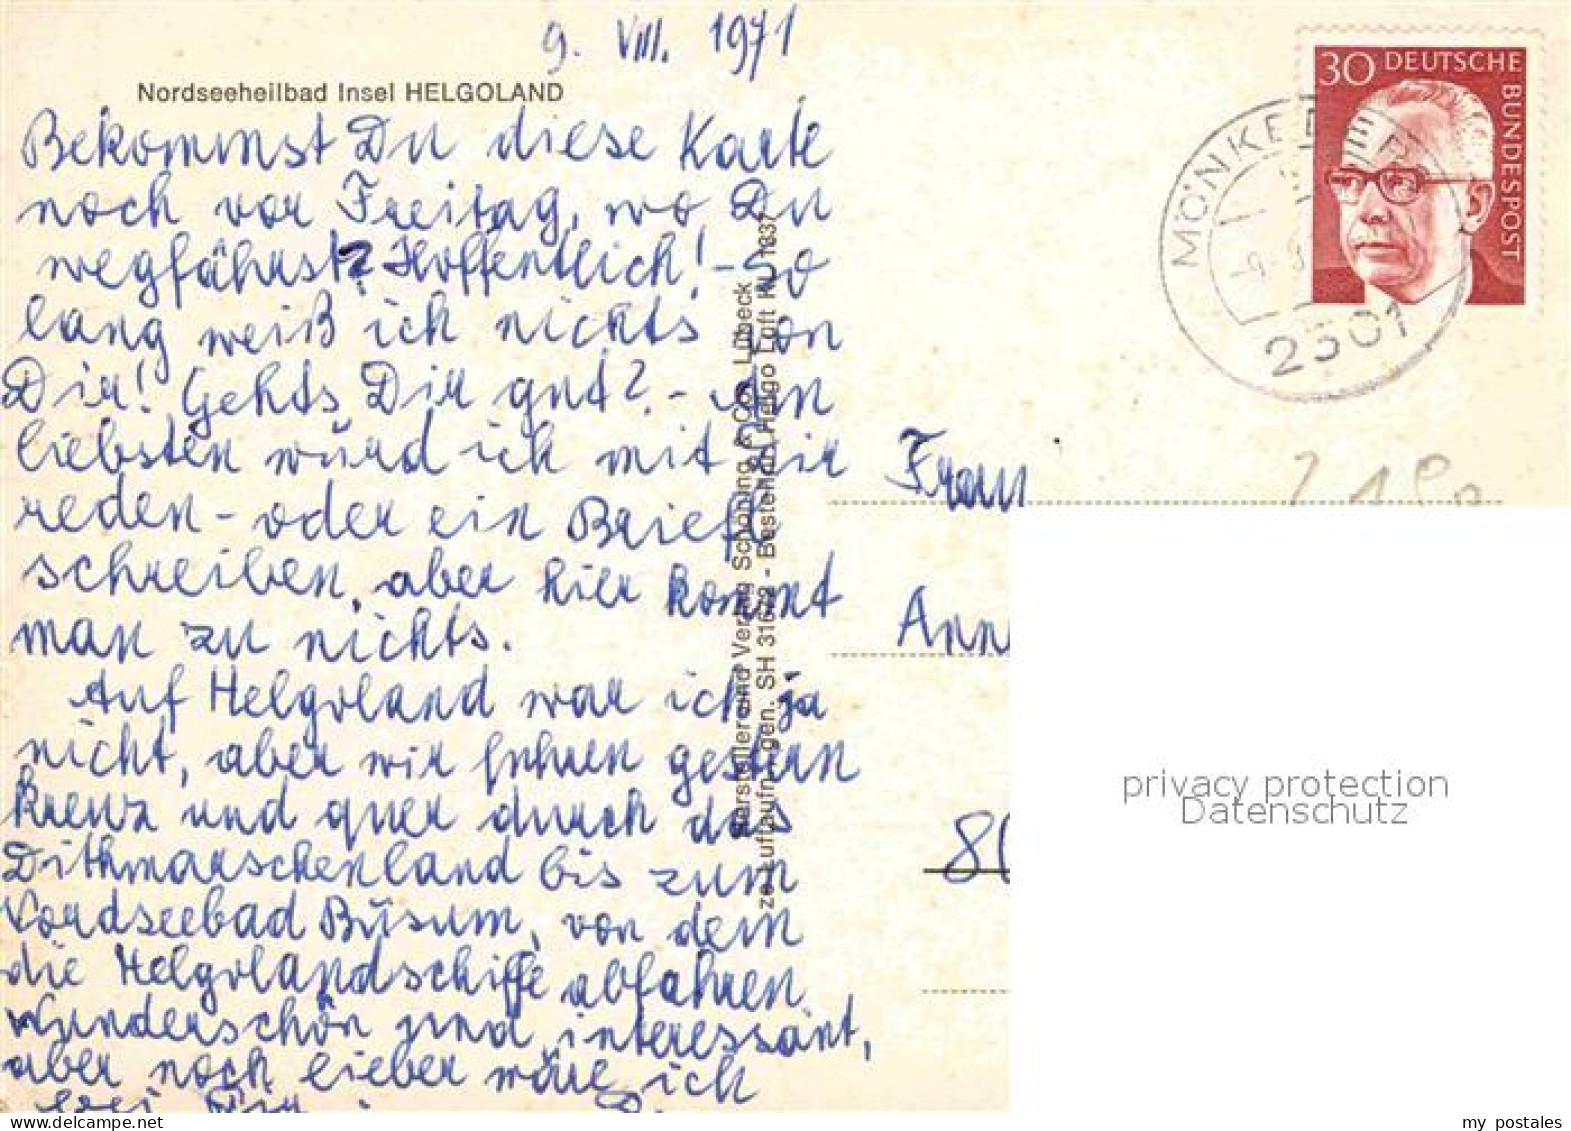 9. VIII. 1971
Nordseeheilbad Insel HELGOLAND
Bekommst Du diese Karte
noch vor Freitag, wo Du
wegfährst? Hoffentlich! - So
lang weiß ich nichts von
Dir! Gehts Dir gut? - Am
liebsten würd ich mit Dir
reden - oder ein Brief
schreiben, aber hier kommt
man zu nichts.
Auf Helgoland war ich ja
nicht, aber wir fuhren gestern
kreuz und quer durch das
Dithmarschenland bis zum
Nordseebad Büsum, von dem
die Helgolandschiffe abfahren
Wunderschön und interessant,
aber noch lieber wäre ich
bei Dir
Hersteller und Verlag Schöning & Co., Lübeck
gen. SH 316/ - Bestell-Nr. Helgo Luft
30 DEUTSCHE
BUNDESPOST
MÖNKEBERG
2301
Frau
Ann
80
privacy protection
Datenschutz
my postales